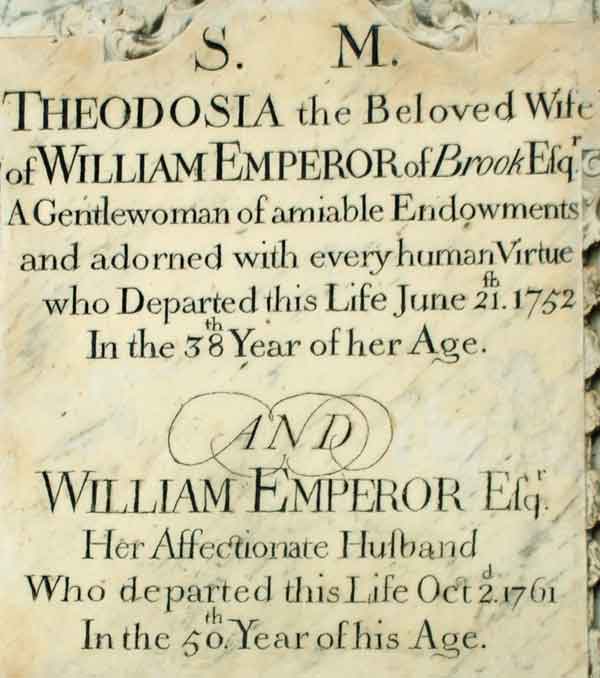 S. M.
THEODOSIA the Beloved Wife
of WILLIAM EMPEROR of Brook Eſqr.
A Gentlewoman of amiable Endowments
and adorned with every human Virtue
who Departed this Life June 21.th 1752
In the 38th Year of her Age.
AND
WILLIAM EMPEROR Eſqr.
Her Affectionate Huſband
Who departed this Life Oct 2.d 1761
In the 50.th Year of his Age.